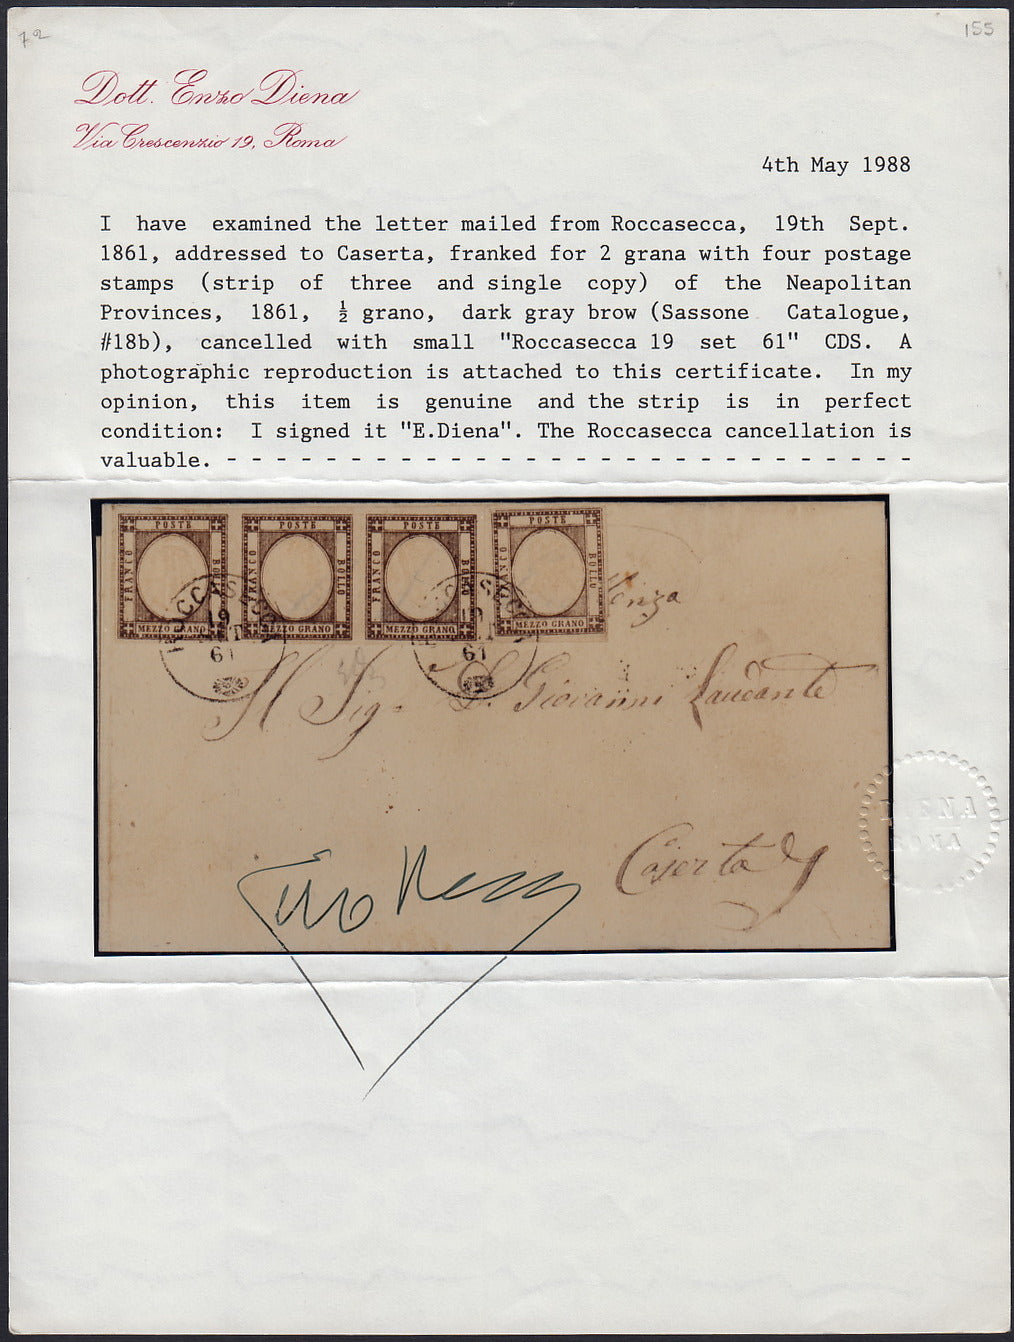 72
155
Dott. Enzo Diena
Via Crescenzio 19, Roma
4th May 1988
I have examined the letter mailed from Roccasecca, 19th Sept.
1861, addressed to Caserta, franked for 2 grana with four postage
stamps (strip of three and single copy) of the Neapolitan
Provinces, 1861, ½ grano, dark gray brow (Sassone Catalogue,
#18b), cancelled with small "Roccasecca 19 set 61" CDS. A
photographic reproduction is attached to this certificate. In my
opinion, this item is genuine and the strip is in perfect
condition: I signed it "E.Diena". The Roccasecca cancellation is
valuable. - - - - - - - - - - - - - - - - - - - - - - - - - - - - - -
POSTE POSTE POSTE POSTE
FRANCO BOLLO FRANCO BOLLO FRANCO BOLLO FRANCO BOLLO
MEZZO GRANO MEZZO GRANO MEZZO GRANO MEZZO GRANO
19
61
19
61
Il Sig. D. Giovanni Laudante
Caserta